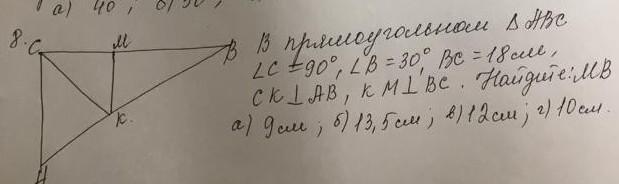 а) 40 ; б) 50 ,
8. C M B
K
A
В прямоугольном Δ ABC
∠C = 90°, ∠B = 30°, BC = 18 см,
CK ⊥ AB, KM ⊥ BC. Найдите: MB
а) 9 см ; б) 13,5 см ; в) 12 см ; г) 10 см.